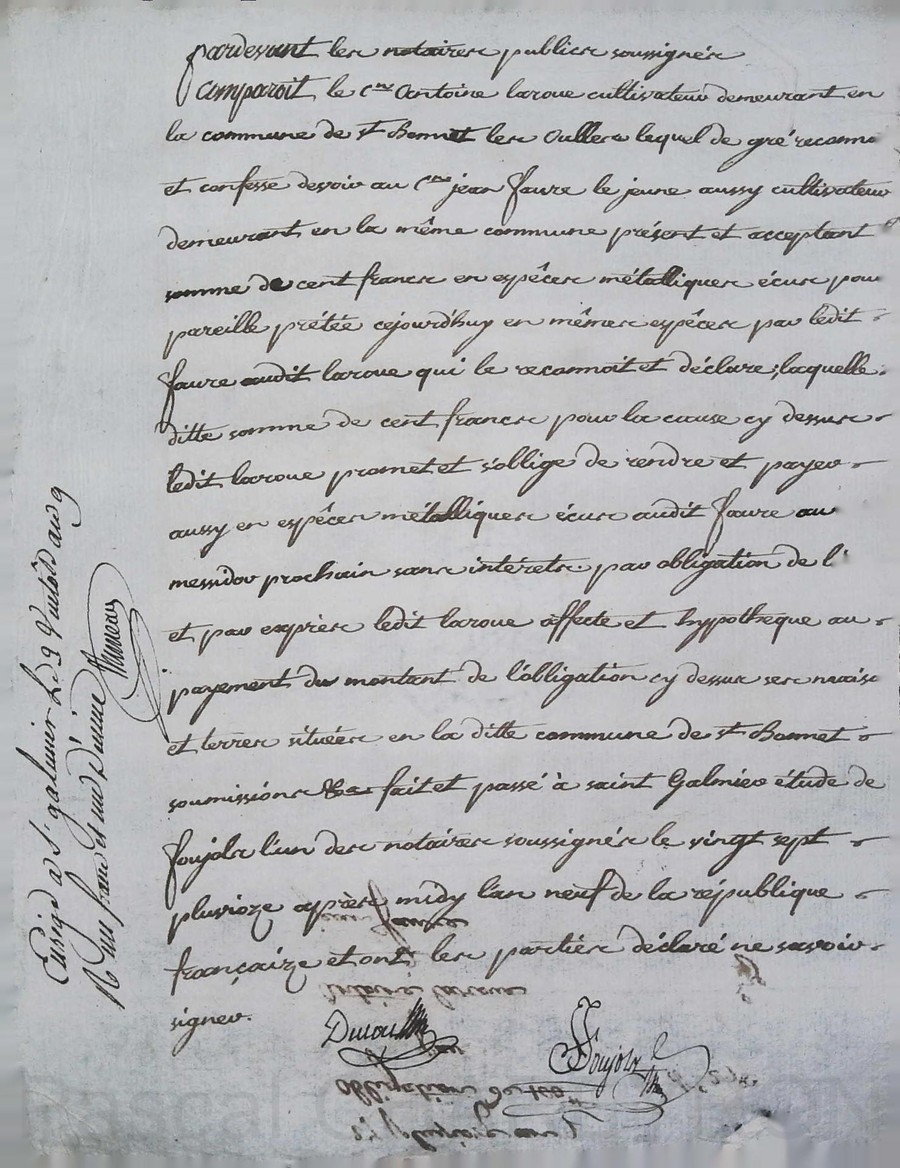 pardevant les notaires publics soussignés
Comparoit le Cen Antoine laroue cultivateur demeurant en
la commune de st Bonnet les Oulles lequel de gré reconno
et confesse devoir au Cen jean faure le jeune aussy cultivateur
demeurant en la même commune présent et acceptant
somme de cent francs en espêces métalliques écus pour
pareille prêtée cejourd'huy en mêmes espêces par ledit
faure audit laroue qui le reconnoit et déclare; laquelle
ditte somme de cent francs pour la cause cy dessus
ledit laroue promet et s'oblige de rendre et payer
aussy en espêces métalliques écus audit faure au
messidor prochain sans intérets: par obligation de l'
et par exprès ledit laroue affecte et hypotheque au
payement du montant de l'obligation cy dessus ses maiso
et terres situées en la ditte commune de st Bonnet
soumissions fait et passé à saint Galmier étude de
foujols l'un des notaires soussignés le vingt sept
pluvioze après midy l'an neuf de la république
françaize et ont les parties déclaré ne savoir
signer.
foujols
Enregé a St galmier Le 9 Ventôse an 9
R un franc
jean faure
antoine laroue
Obligation